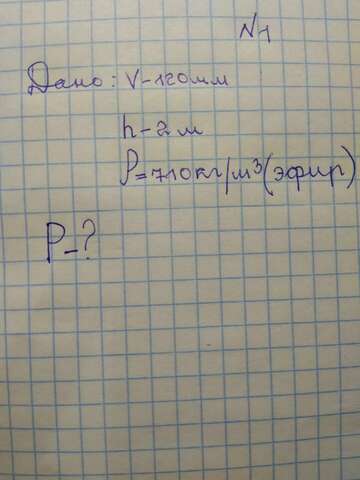 №1
Дано: V-120мм
h-2м
ρ=710кг/м³(эфир)
P-?